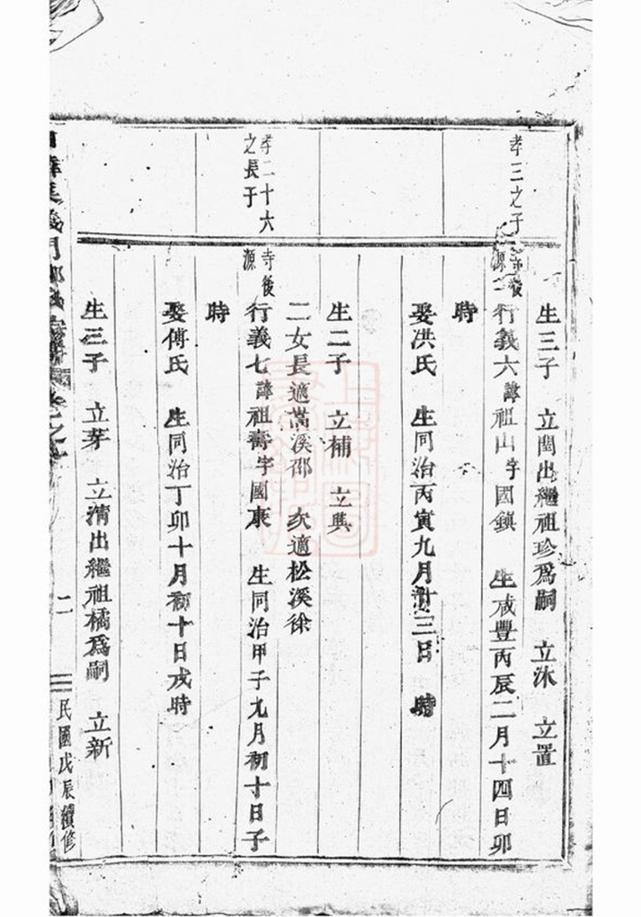 生三子 立閏出繼祖珍爲嗣 立沐 立置
孝三之子
寺後源 行義六諱祖山字國鎮 生咸豐丙辰二月十四日卯
時
娶洪氏 生同治丙寅九月廿三日 時
生二子 立補 立典
二女長適嵩溪邵 次適松溪徐
孝二十六之長子
寺後源 行義七諱祖壽字國康 生同治甲子九月初十日子
時
娶傅氏 生同治丁卯十月初十日戌時
生三子 立芽 立清出繼祖橘爲嗣 立新
義門
卷之
二
民國戊辰續修